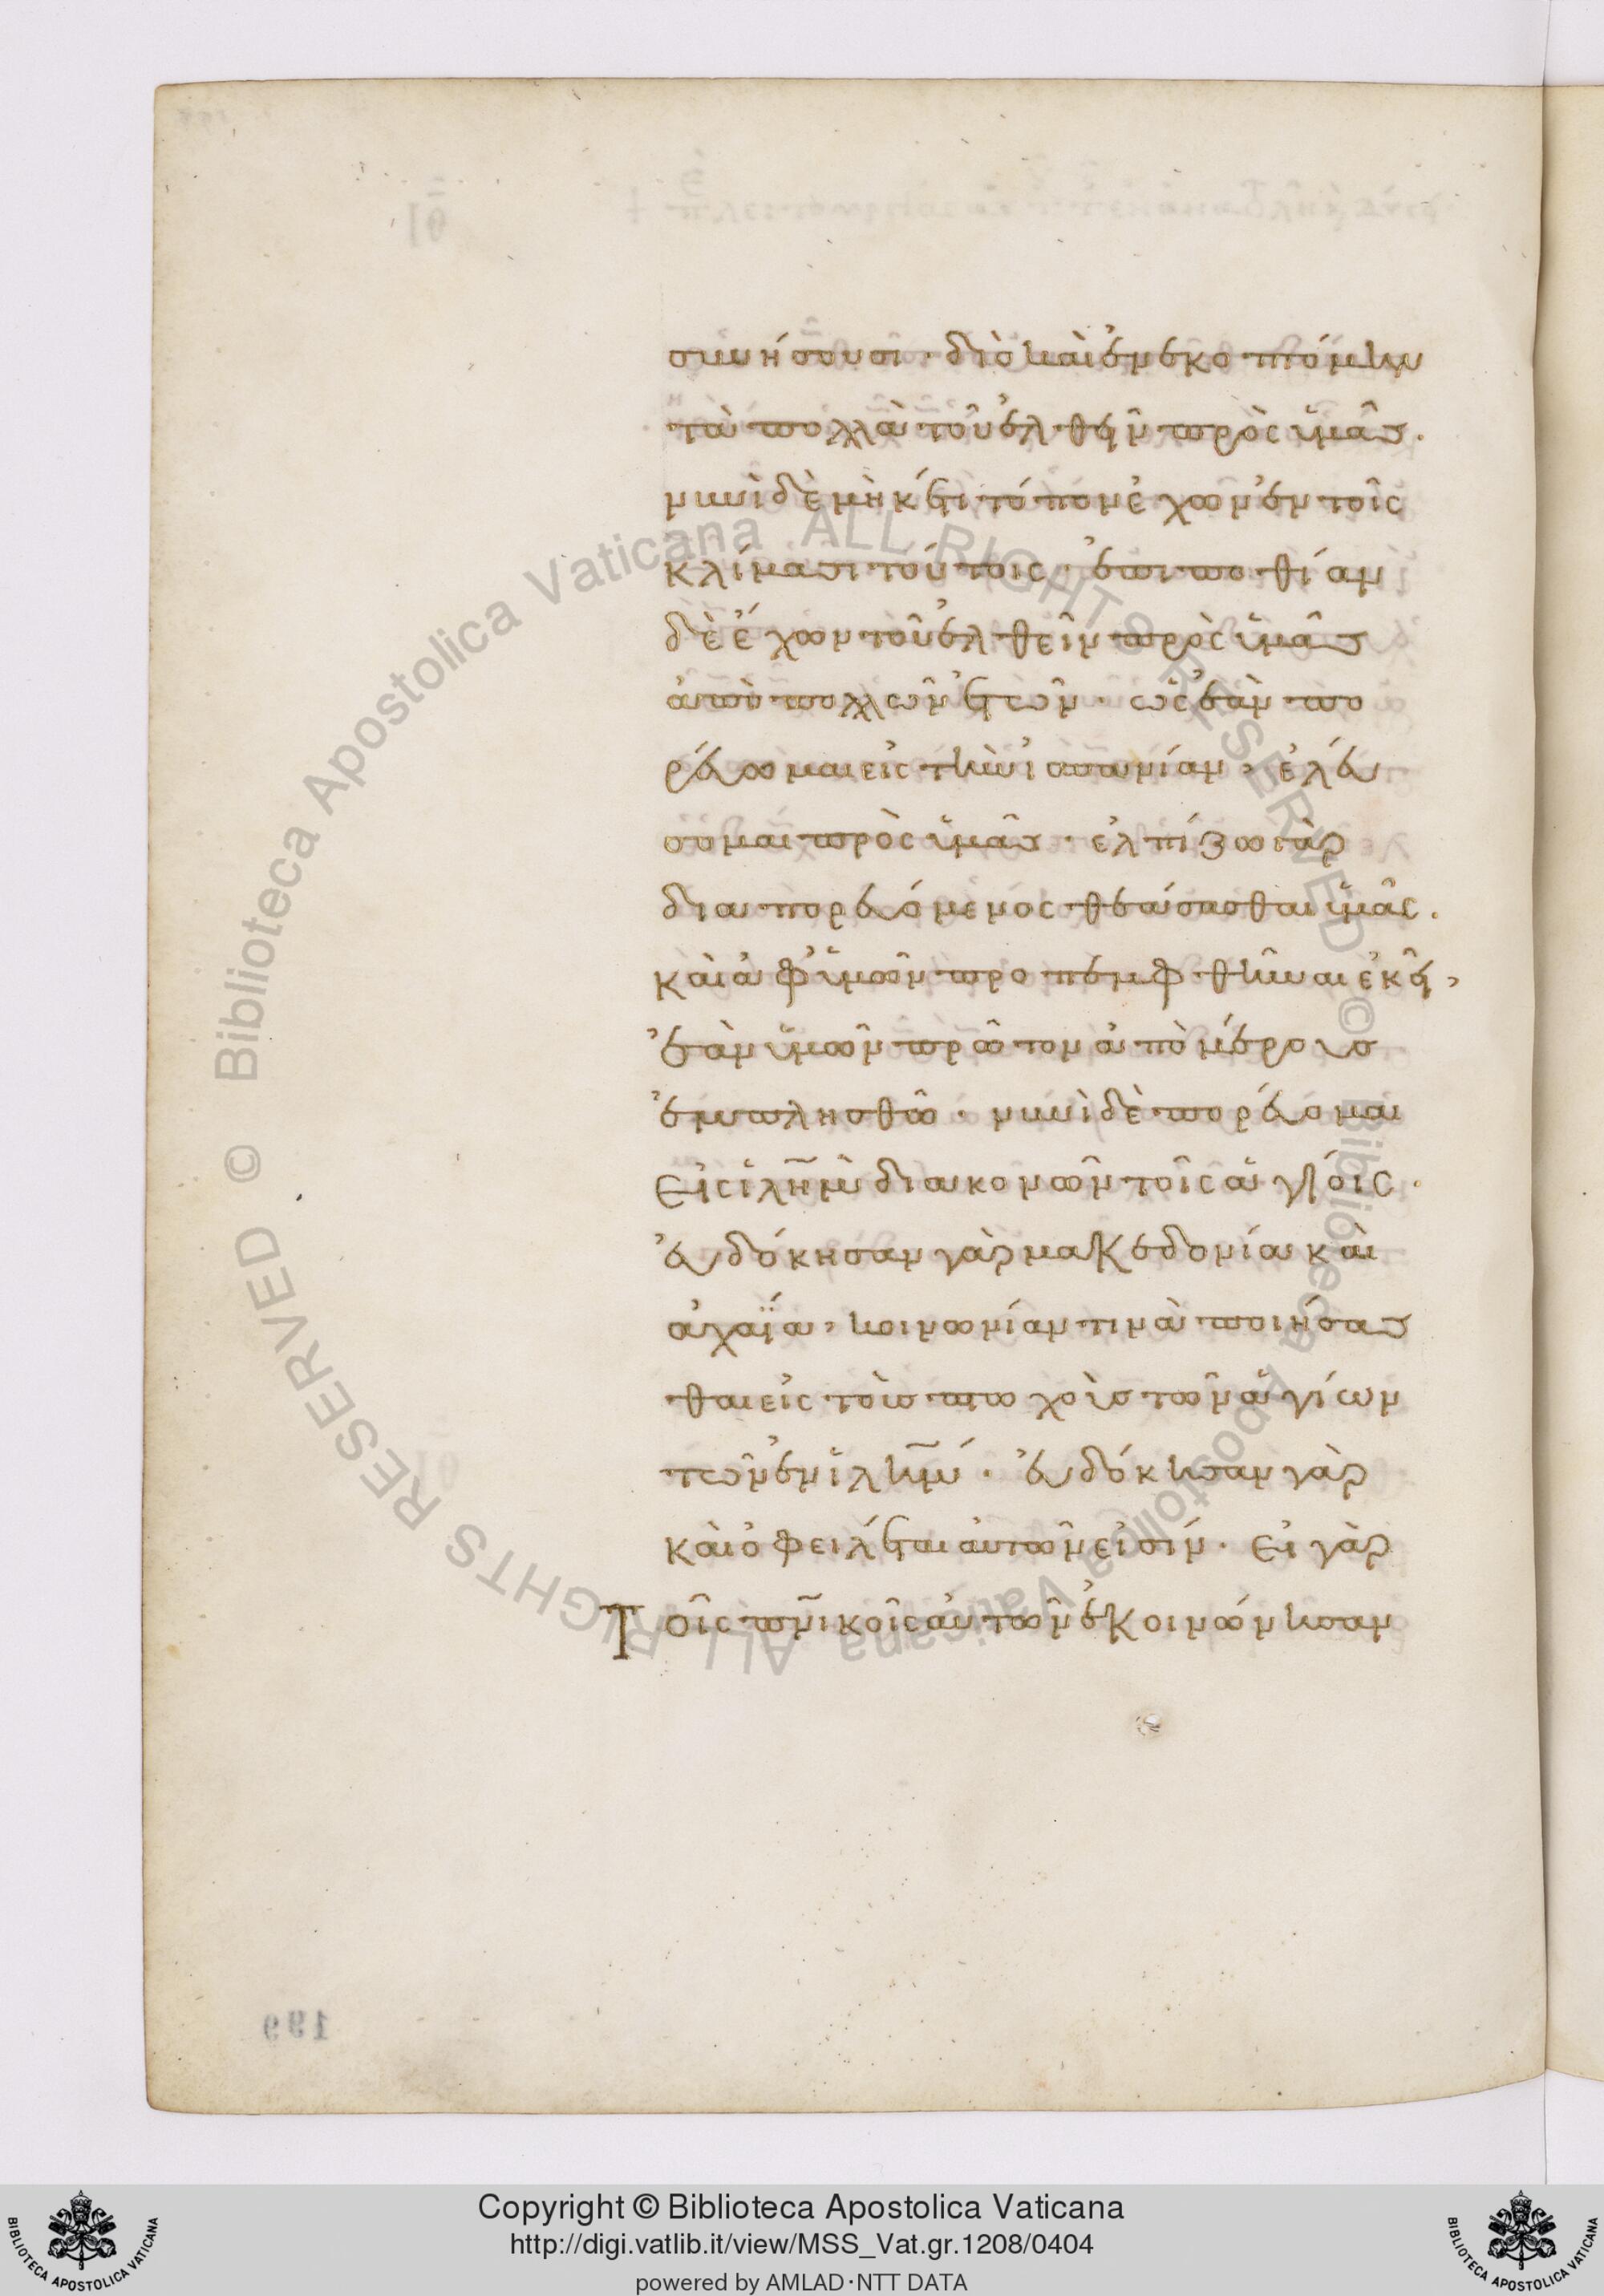 συνήσουσι· διὸ καὶ ἐνεκοπτόμην
τὰ πολλὰ τοῦ ἐλθεῖν πρὸς ὑμᾶς.
νυνὶ δὲ μηκέτι τόπον ἔχων ἐν τοῖς
κλίμασι τούτοις· ἐπιποθίαν
δὲ ἔχων τοῦ ἐλθεῖν πρὸς ὑμᾶς
ἀπὸ πολλῶν ἐτῶν· ὡς ἐὰν πο
ρεύωμαι εἰς τὴν ἱσπανίαν, ἐλεύ
σομαι πρὸς ὑμᾶς· ἐλπίζω γὰρ
διαπορευόμενος θεάσασθαι ὑμᾶς.
καὶ ἀφ' ὑμῶν προπεμφθῆναι ἐκεῖ,
ἐὰν ὑμῶν πρῶτον ἀπὸ μέρους
ἐμπλησθῶ· νυνὶ δὲ πορεύομαι
εἰς ἱλῆμ διακονῶν τοῖς ἁγίοις·
εὐδόκησαν γὰρ μακεδονία καὶ
ἀχαΐα, κοινωνίαν τινὰ ποιήσασ
θαι εἰς τοὺς πτωχοὺς τῶν ἁγίων
τῶν ἐν ἱλῆμ· εὐδόκησαν γὰρ
καὶ ὀφειλέται αὐτῶν εἰσίν· εἰ γὰρ
τοῖς πνικοῖς αὐτῶν ἐκοινώνησαν
199
Biblioteca Apostolica Vaticana ALL RIGHTS RESERVED ©
Biblioteca Apostolica Vaticana ALL RIGHTS RESERVED ©
Copyright © Biblioteca Apostolica Vaticana
http://digi.vatlib.it/view/MSS_Vat.gr.1208/0404
powered by AMLAD·NTT DATA
BIBLIOTECA APOSTOLICA VATICANA
BIBLIOTECA APOSTOLICA VATICANA